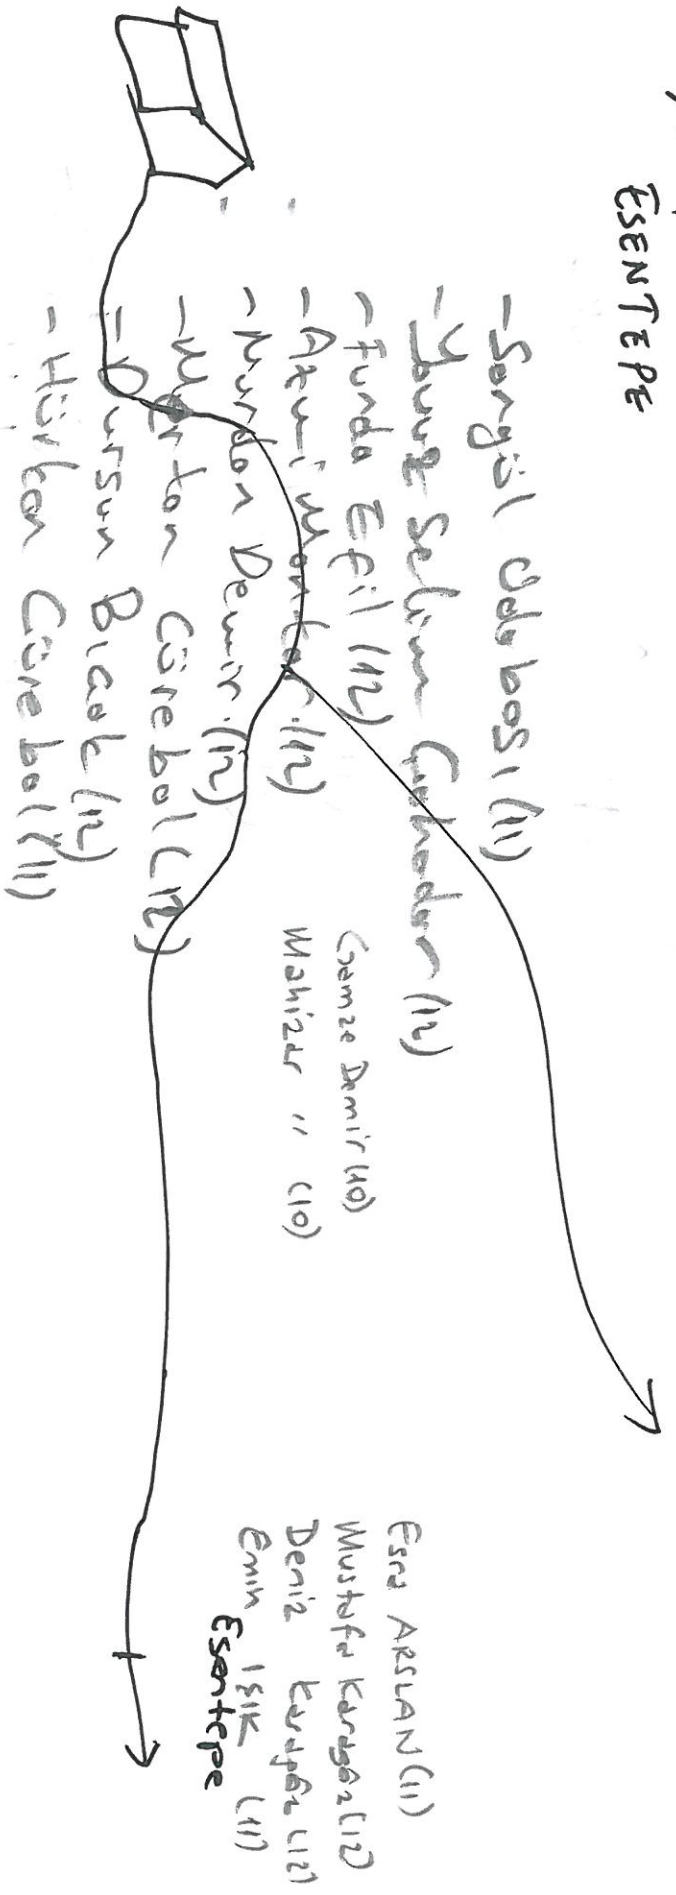 ESENTEPE
- Songül Odabaşı (11)
- Yavuz Selim (12)
- Funda Efil (12)
- Azmi (12)
- Nurdan Demir (12)
- Mertan Cürebal (12)
- Dursun Bıçak (12)
- Hürkan Cürebal (11)
Gamze Demir (10)
Mahizar " (10)
Esra ARSLAN (11)
Mustafa Karagöz (12)
Deniz Karagöz (12)
Emin IŞIK (11)
Esentepe